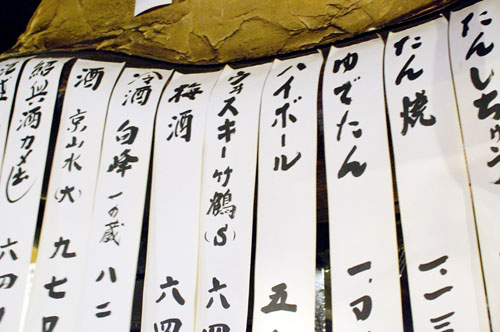 たんしちゅ
たん焼 一.二三
ゆでたん 一.
ハイボール 五
ウヰスキー竹鶴(S) 六四
梅酒 六四
冷酒 白峰 一の蔵 八二
酒 京山水(大) 九七
紹興酒カメ出し 六四